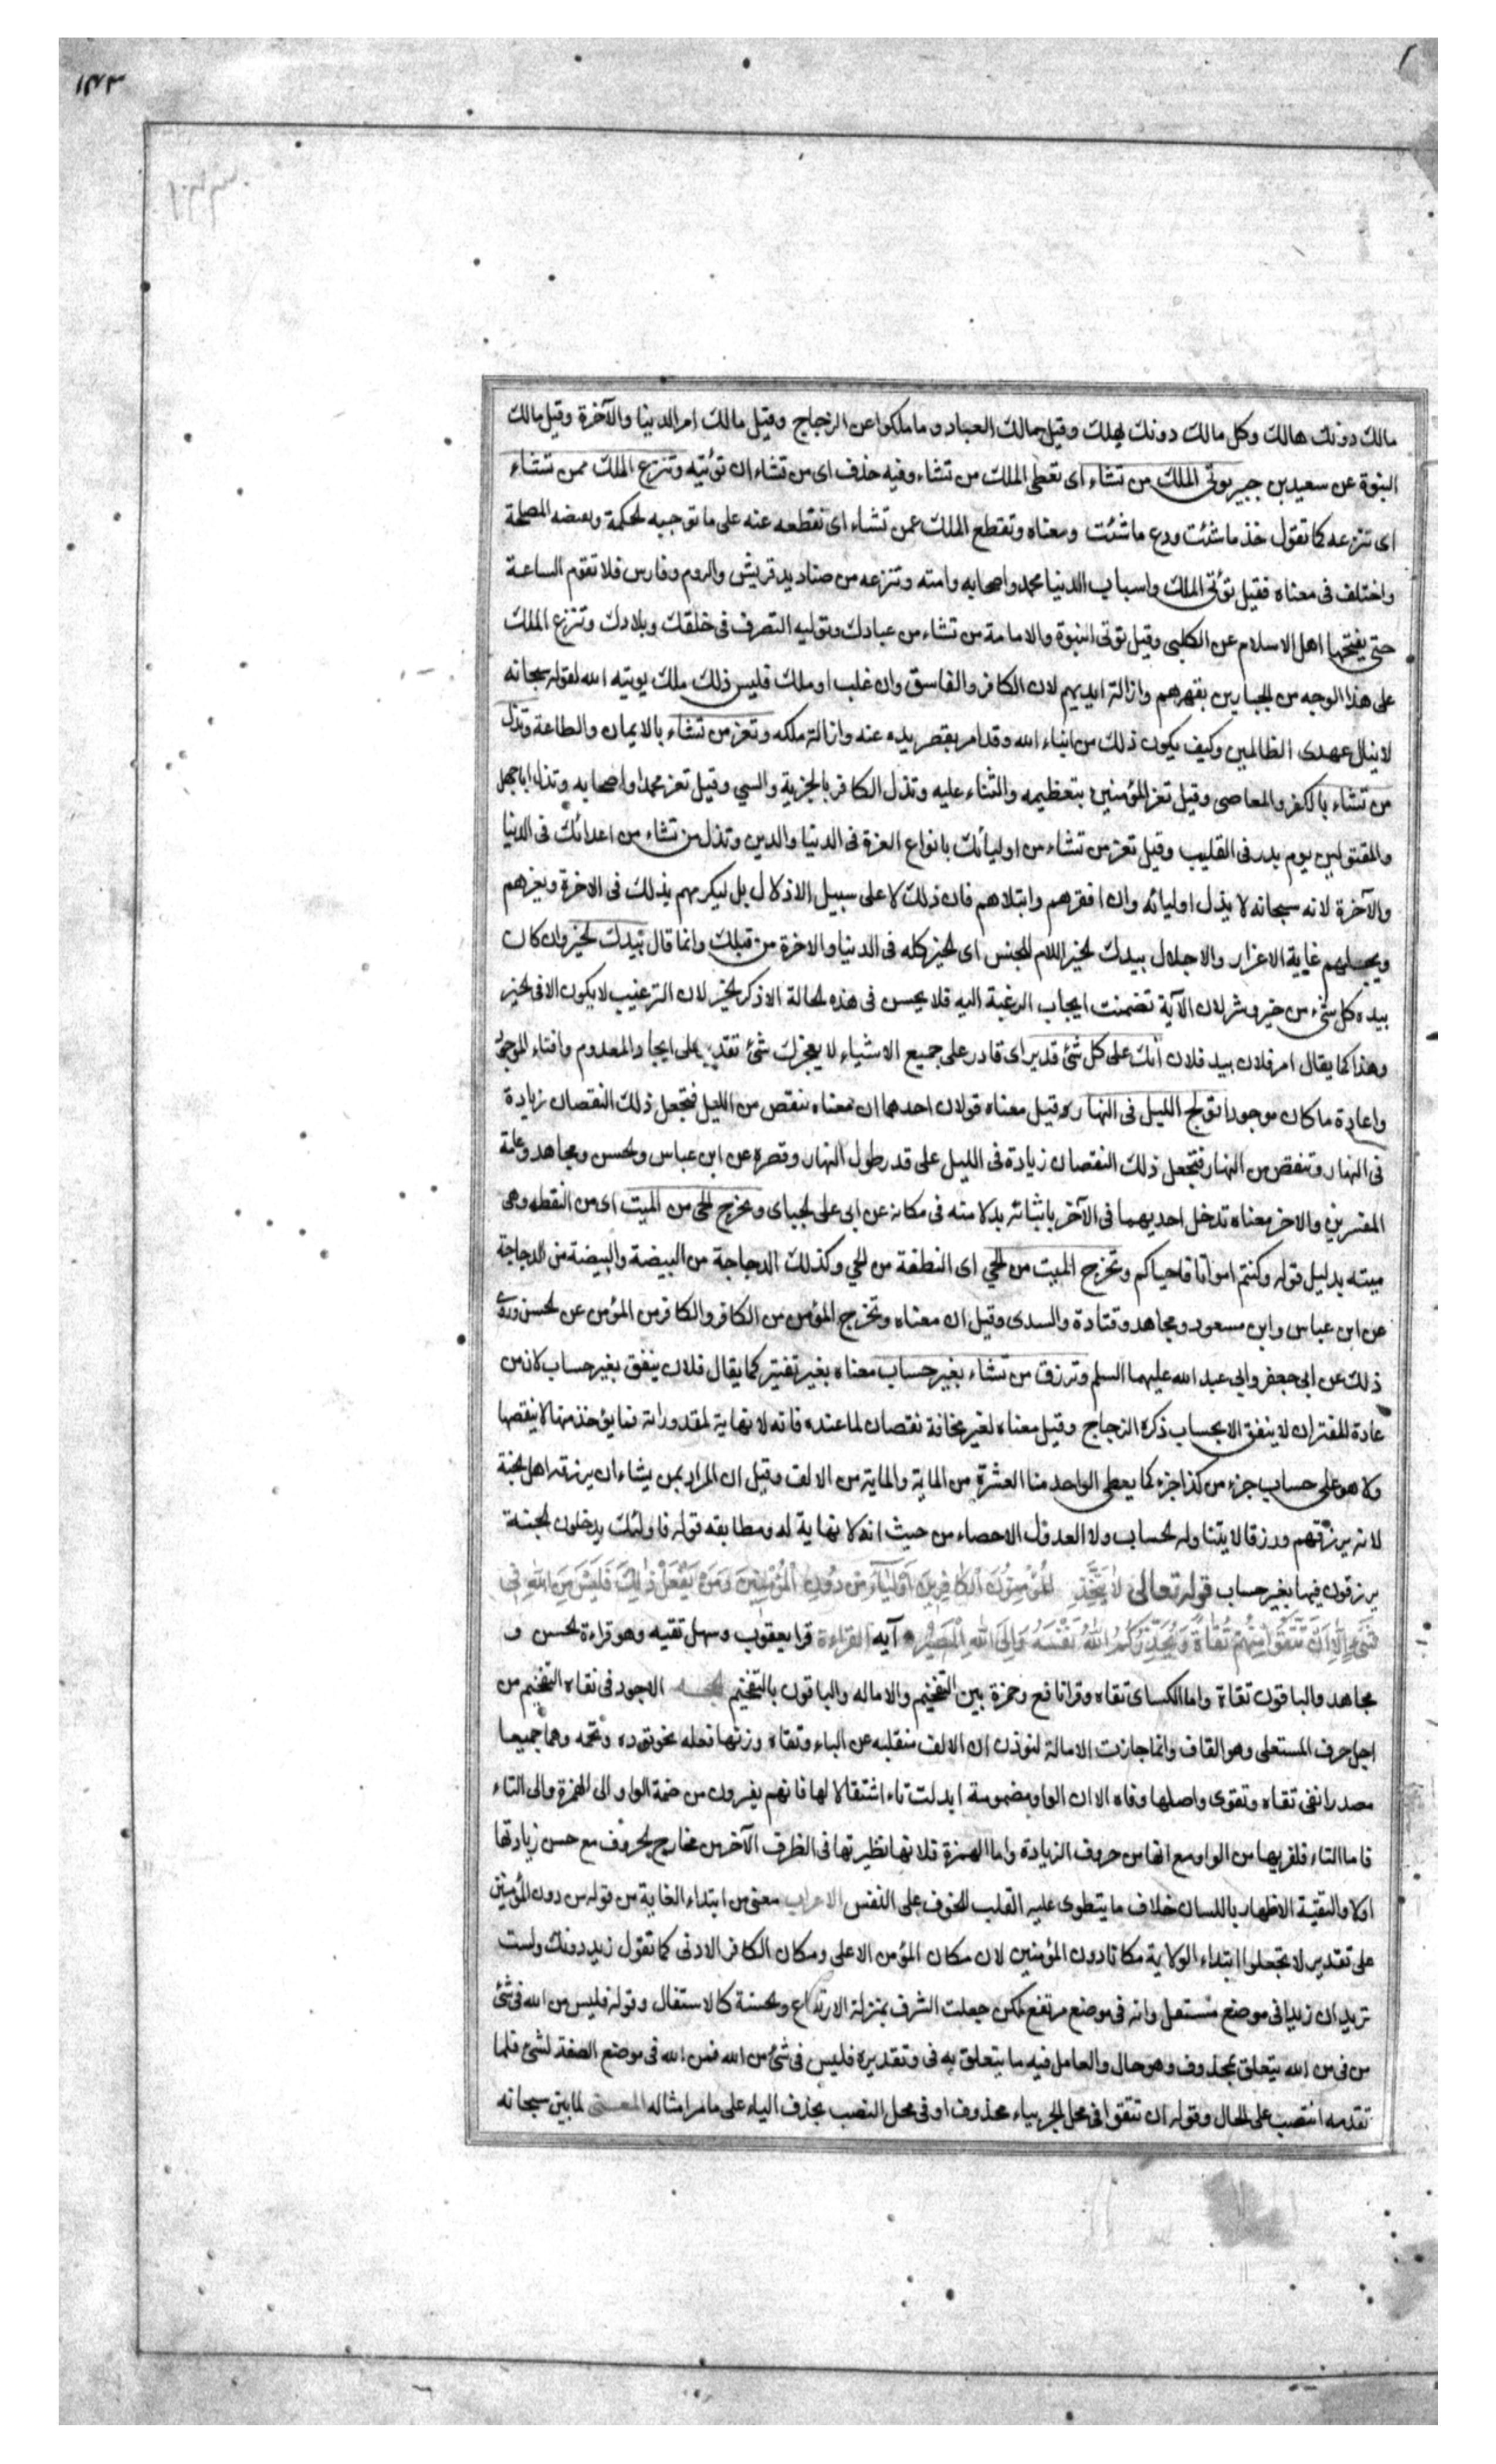 ١٤٣
مالك دونك هالك وكل مالك دونك يهلك وقيل مالك العباد وما ملكوا عن الزجاج وقيل مالك امر الدنيا والآخرة وقيل مالك
النبوة عن سعيد بن جبير توتى الملك من تشاء اى تعطى الملك من تشاء وفيه حذف اى من تشاء ان تؤتيه وتنزع الملك ممن تشاء
اى تنزعه كما تقول خذ ما شئت ودع ما شئت ومعناه وتقطع الملك عمن تشاء اى تقطعه عنه على ما توجبه الحكمة وتقتضيه المصلحة
واختلف فى معناه فقيل تؤتى الملك واسباب الدنيا محمد واصحابه وامته وتنزعه من صناديد قريش والروم وفارس فلا تقوم الساعة
حتى يفتحها اهل الاسلام عن الكلبى وقيل توتى النبوة والامامة من تشاء من عبادك وتوليه التصرف فى خلقك وبلادك وتنزع الملك
على هذا الوجه من الجبارين بقهرهم وازالة ايديهم لان الكافر والفاسق وان غلب او ملك فليس ذلك ملك يوتيه الله لقوله سبحانه
لا ينال عهدى الظالمين وكيف يكون ذلك من ايتاء الله وقد امر بقصر يده عنه وازالة ملكه وتعز من تشاء بالايمان والطاعة وتذل
من تشاء بالكفر والمعاصى وقيل تعز المؤمنين بتعظيمه والثناء عليه وتذل الكافر بالجزية والسبي وقيل تعز محمدا واصحابه وتذل اباجهل
والمقتولين يوم بدر فى القليب وقيل تعز من تشاء من اوليائك بانواع العزة فى الدنيا والدين وتذل من تشاء من اعدائك فى الدنيا
والآخرة لانه سبحانه لا يذل اوليائه وان افقرهم وابتلاهم فان ذلك لا على سبيل الاذلال بل ليكرمهم بذلك فى الاخرة ويعزهم
ويجعلهم غاية الاعزاز والاجلال بيدك الخير اللام للجنس اى الخير كله فى الدنيا والاخرة من قبلك وانما قال بيدك الخير وان كان
بيده كل شىء من خير وشر لان الآية تضمنت ايجاب الرغبة اليه فلا يحسن فى هذه الحالة الا ذكر الخير لان الترغيب لا يكون الا فى الخير
وهذا كما يقال امر فلان بيد فلان انك على كل شئ قدير اى قادر على جميع الاشياء لا يعجزك شئ تقدر على ايجاد المعدوم وافناء الموجود
واعادة ما كان موجودا تولج الليل فى النهار قيل معناه قولان احدهما ان معناه ننقص من الليل فتجعل ذلك النقصان زيادة
فى النهار وتنقص من النهار فتجعل ذلك النقصان زيادة فى الليل على قدر طول النهار وقصره عن ابن عباس والحسن ومجاهد وعامة
المفسرين والاخر معناه تدخل احديهما فى الآخر باتيانه بدلا منه فى مكانه عن ابى على الجباى وتخرج الحى من الميت اى من النطفه وهى
ميته بدليل قوله وكنتم امواتا فاحياكم وتخرج الميت من الحي اى النطفة من الحي وكذلك الدجاجة من البيضة والبيضة من الدجاجة
عن ابن عباس وابن مسعود ومجاهد وقتادة والسدى وقيل ان معناه وتخرج المؤمن من الكافر والكافر من المؤمن عن الحسن وروى
ذلك عن ابى جعفر وابي عبد الله عليهما السلم وترزق من تشاء بغير حساب معناه بغير تقتير كما يقال فلان ينفق بغير حساب لان من
عادة المقتر ان لا ينفق الا بحساب ذكره الزجاج وقيل معناه لغير مخافة نقصان لما عنده فانه لا نهاية لمقدوراته فما يؤخذ منها لا ينقصها
ولا هو على حساب جزء من كذا جزء كما يعطى الواحد منا العشرة من الماية والماية من الالف وقيل ان المراد بمن يشاء ان يرزقه اهل الجنة
لانه يرزقهم ورزقا لا يتناوله الحساب ولا العد ولا الاحصاء من حيث انه لا نهاية له ومطابقه قوله فاولئك يدخلون الجنة
يرزقون فيها بغير حساب قوله تعالى لا يَتَّخِذِ الْمُؤْمِنُونَ الْكافِرِينَ اَوْلِيآءَ مِنْ دُونِ الْمُؤْمِنِينَ وَمَنْ يَفْعَلْ ذٰلِكَ فَلَيْسَ مِنَ اللهِ فِى
شَىْءٍ اِلَّا اَنْ تَتَّقُوا مِنْهُمْ تُقَاةً وَيُحَذِّرُكُمُ اللهُ نَفْسَهُ وَاِلَى اللهِ الْمَصِيرُ آيه القراءة قرا يعقوب وسهل تقيه وهو قراءة الحسن و
مجاهد والباقون تقاة واما الكساى تقاه وقرا نافع وحمزة بين التفخيم والاماله والباقون بالتفخيم الحجه الاجود فى تقاه التفخيم من
اجل حرف المستعلى وهو القاف وانما جازت الامالة لتوذن ان الالف منقلبه عن الياء وتقاه وزنها فعله نحو تؤده وتخمه وهما جميعا
مصدر اتقى تقاه وتقوى واصلها وقاه الا ان الواو مضمومة ابدلت تاء اشتقالا لها فانهم يفرون من ضمة الواو الى الهمزة والى التاء
فاما التاء فلقربها من الواو مع انها من حروف الزيادة واما الهمزة فلانها نظيرتها فى الطرف الآخر من مخارج الحروف مع حسن زيادتها
اولا والتقية الاظهار باللسان خلاف ما ينطوى عليه القلب للخوف على النفس الاعراب معنى من ابتداء الغاية من قوله من دون المؤمنين
على تقدير لا تجعلوا ابتداء الولاية مكانا دون المؤمنين لان مكان المؤمن الاعلى ومكان الكافر الادنى كما تقول زيد دونك ولست
تريد ان زيدا فى موضع مستفل وانه فى موضع مرتفع لكن جعلت الشرف بمنزلة الارتفاع والخسة كالاستفال وقوله فليس من الله فى شئ
من فى من الله يتعلق بمحذوف وهو حال والعامل فيه ما يتعلق به فى وتقديره فليس فى شئ من الله فمن الله فى موضع الصفة لشئ فلما
تقدمه انتصب على الحال وقوله ان تتقوا فى محل الجر بباء محذوف او فى محل النصب بحذف الباء على ما مر امثاله المعنى لما بين سبحانه